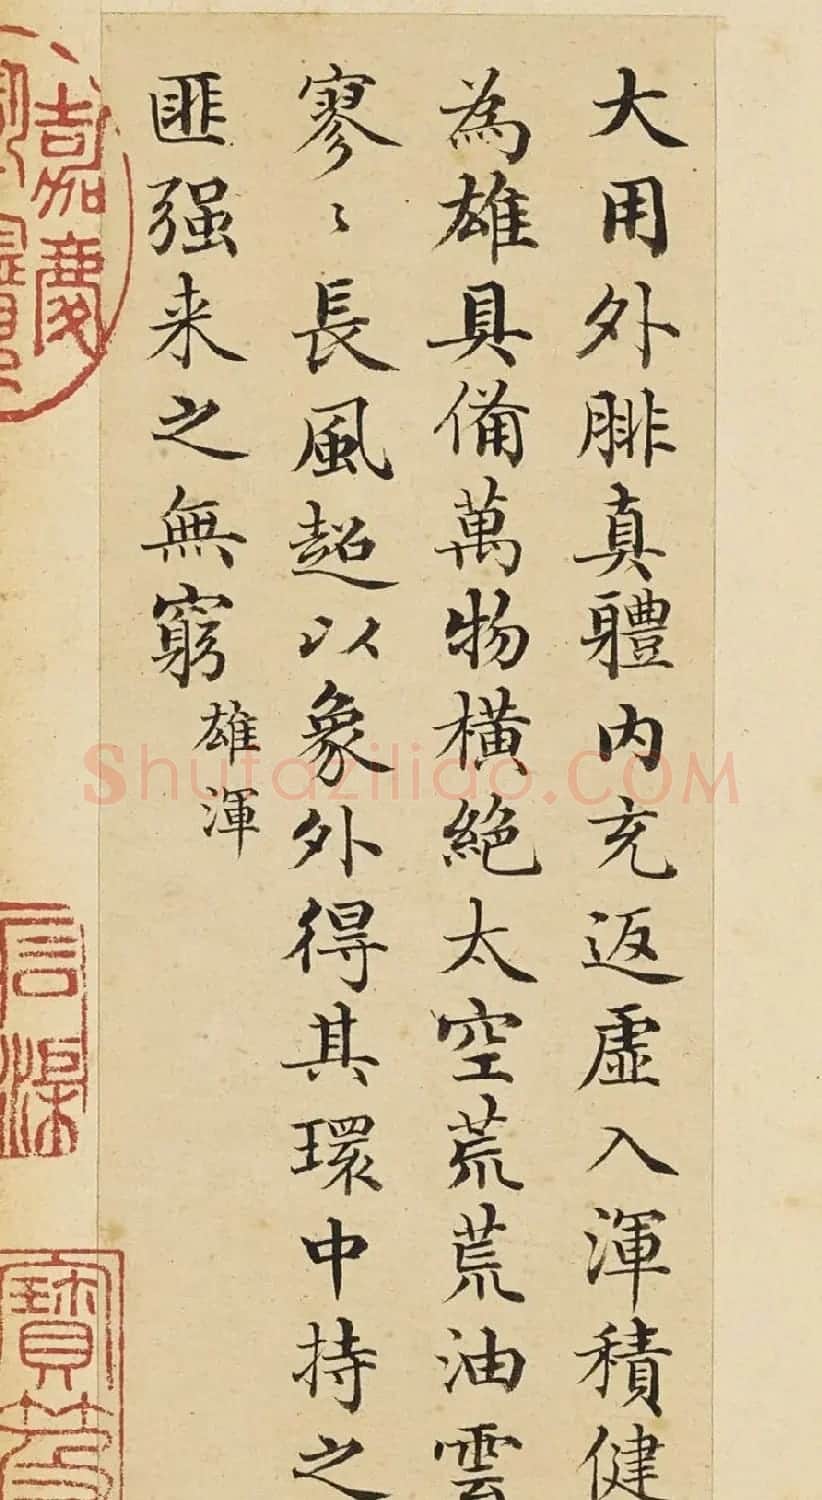 大用外腓真體内充返虛入渾積健
為雄具備萬物橫絕太空荒荒油雲
寥〻長風超以象外得其環中持之
匪强来之無窮
雄渾
嘉慶
寶
Shufaziliao.COM